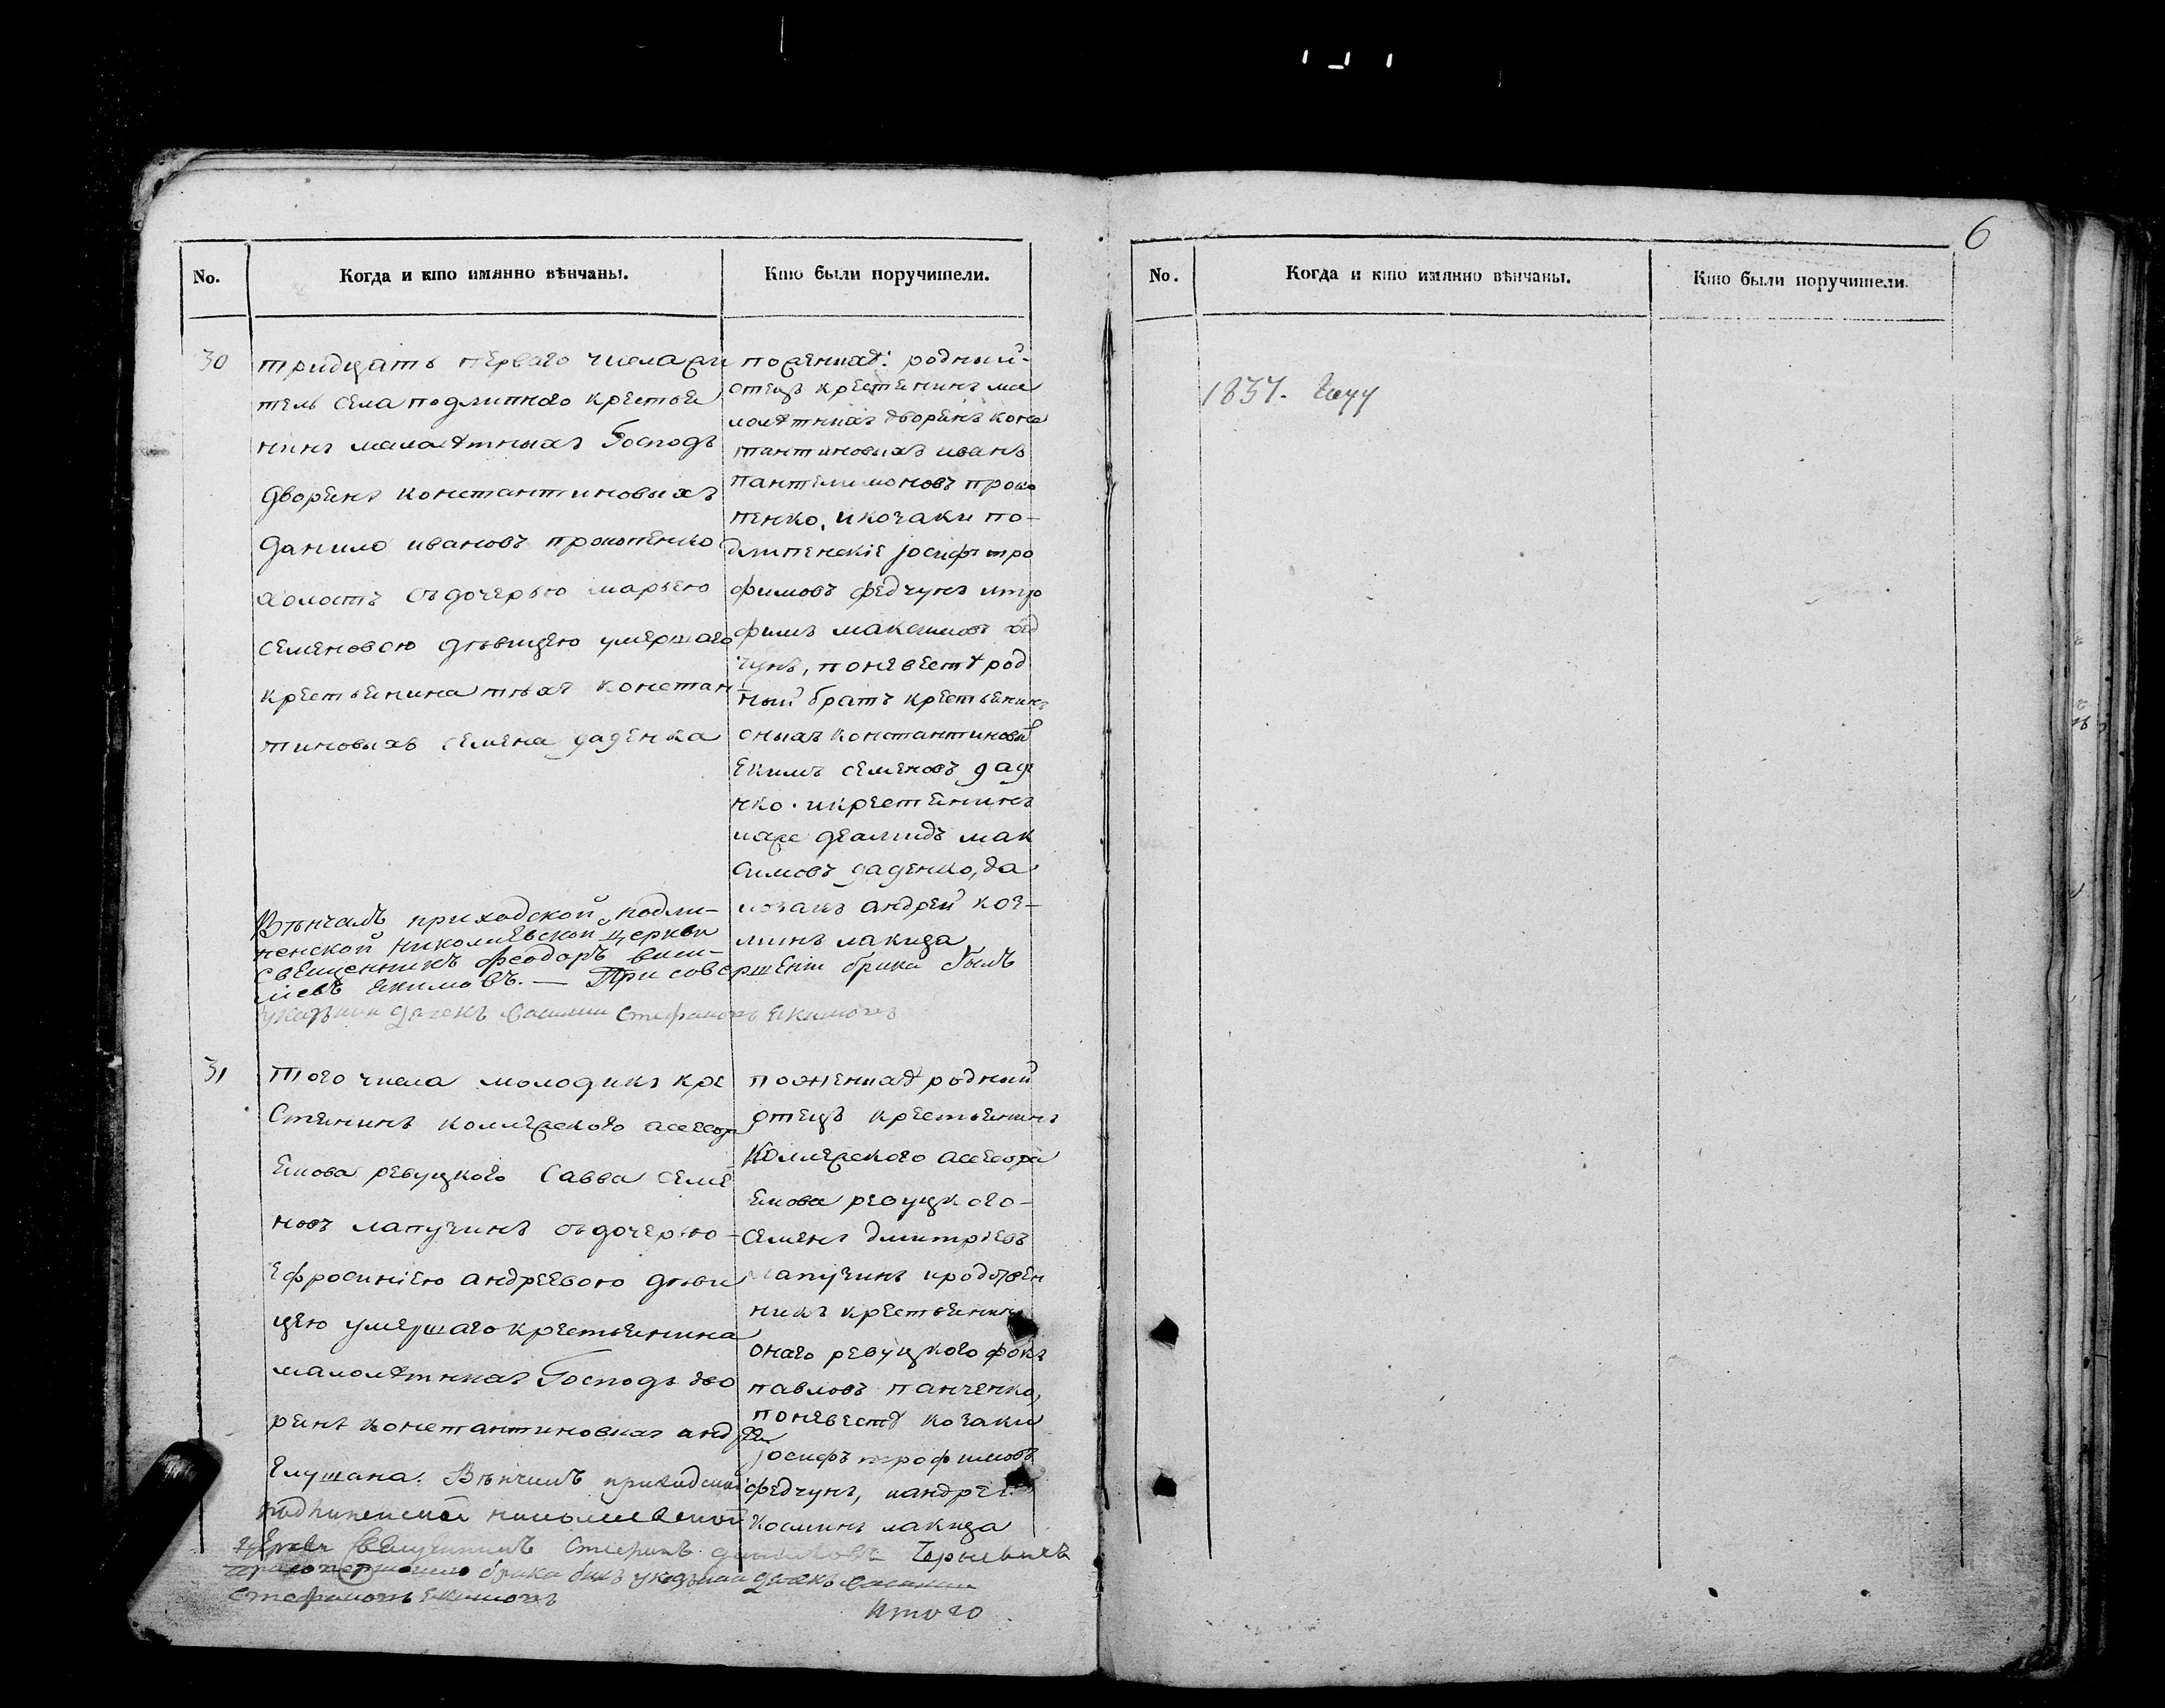 6
No. Когда и кто имянно вѣнчаны. Кто были поручители.
30
тридцать перваго числа жи
тель села подлипного крестья
нинъ малолѣтныхъ Господъ
дворянъ константиновыхъ
данило ивановъ прокопенко
холостъ съ дочерью марьею
семеновою дѣвицею умершаго
крестьянина тѣхъ констан-
тиновыхъ семена даденка
Вѣнчалъ приходской подли-
пенской николаевской церкви
священникъ феодоръ васи-
лiевъ якимовъ. — При совершенiи брака былъ
указный дячекъ василий стефановъ якимовъ
по женихѣ: родный-
отецъ крестянинъ ма
лолѣтныхъ дворянъ конс
тантиновыхъ иванъ
пантелимоновъ проко
пенко, и козаки по-
длипенскiе Iосифъ тро
фимовъ федчунъ и тро
фимъ максимовъ фед
чунъ, по невестѣ род
ный братъ крестьянинъ
оныхъ константиновы
екимъ семеновъ даде
нко. и крестянинъ
ихже демидъ мак
симовъ даденко, да
козакъ андрей коз-
минъ лакида
31
Того числа молодикъ кре
стянинъ коллежского асесор
Емова ревуцкого савва семе
новъ лапузинъ съ дочерью-
ефросинiею андреевою деви
цею умершаго крестьянина
малолѣтныхъ Господъ дво
рянъ константиновыхъ андрея
Глушана. Вѣнчалъ приходской
подлипенской николаевской
церкви священникъ
при совершенiи брака былъ указный дячекъ василий
стефановъ якимовъ
по женихѣ родный
отецъ крестьянинъ
Коллежского асесора
Емова ревуцкого-
семенъ дмитрiевъ
лапузинъ и родствен
никъ крестьянинъ
онаго ревуцкого фока
павловъ панченко,
по невестѣ козаки
Iосифъ трофимовъ
федчунъ, и андрей
косминъ лакида
Итого
No. Когда и кто имянно вѣнчаны. Кто были поручители.
1837.